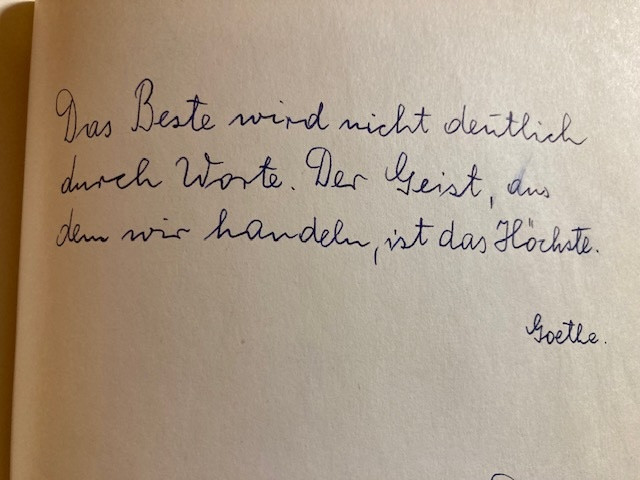 Das Beste wird nicht deutlich
durch Worte. Der Geist, aus
dem wir handeln, ist das Höchste.
Goethe.